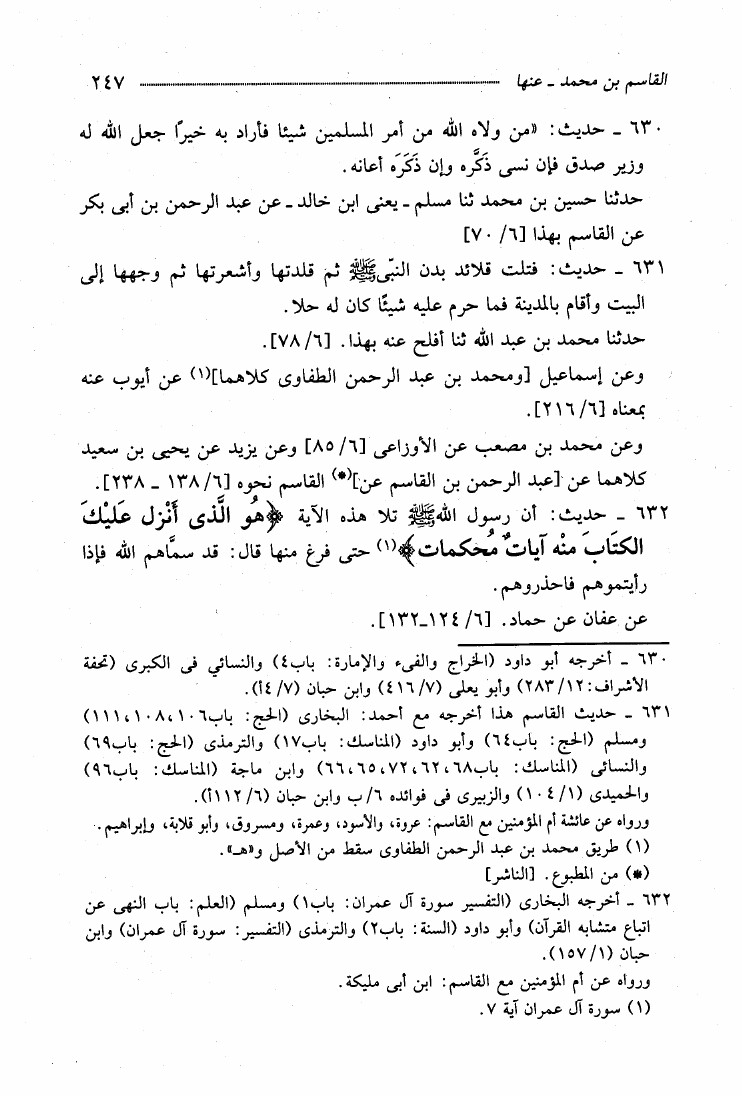 القاسم بن محمد ـ عنها ٢٤٧
٦٣٠ ـ حديث: «من ولاه الله من أمر المسلمين شيئا فأراد به خيرًا جعل الله له
وزير صدق فإن نسى ذَكَّره وإن ذَكَرَه أعانه.
حدثنا حسين بن محمد ثنا مسلم ـ يعنى ابن خالد ـ عن عبد الرحمن بن أبى بكر
عن القاسم بهذا [٦/ ٧٠]
٦٣١ ـ حديث: فتلت قلائد بدن النبّى ﷺ ثم قلدتها وأشعرتها ثم وجهها إلى
البيت وأقام بالمدينة فما حرم عليه شيئًا كان له حلا.
حدثنا محمد بن عبد الله ثنا أفلح عنه بهذا. [٦/ ٧٨].
وعن إسماعيل [ومحمد بن عبد الرحمن الطفاوى كلاهما](١) عن أيوب عنه
بمعناه [٦/ ٢١٦].
وعن محمد بن مصعب عن الأوزاعى [٦/ ٨٥] وعن يزيد عن يحيى بن سعيد
كلاهما عن [عبد الرحمن بن القاسم عن](*) القاسم نحوه [٦/ ١٣٨ ـ ٢٣٨].
٦٣٢ ـ حديث: أن رسول الله ﷺ تلا هذه الآية ﴿هُوَ الَّذى أَنْزل عَلَيْكَ
الكتَابَ منْه آيَاتٌ مُحكمات﴾(١) حتى فرغ منها قال: قد سمَّاهم الله فإذا
رأيتموهم فاحذروهم.
عن عفان عن حماد. [٦/ ١٢٤ـ١٣٢].
٦٣٠ ـ أخرجه أبو داود (الخراج والفىء والإمارة: باب٤) والنسائي فى الكبرى (تحفة
الأشراف: ١٢/ ٢٨٣) وأبو يعلى (٧/ ٤١٦) وابن حبان (٧/ ٤أ).
٦٣١ ـ حديث القاسم هذا أخرجه مع أحمد: البخارى (الحج: باب١٠٦، ١٠٨، ١١١)
ومسلم (الحج: باب٦٤) وأبو داود (المناسك: باب١٧) والترمذى (الحج: باب٦٩)
والنسائى (المناسك: باب٦٨، ٦٢، ٧٢، ٦٥، ٦٦) وابن ماجة (المناسك: باب٩٦)
والحميدى (١/ ١٠٤) والزبيرى فى فوائده ٦/ ب وابن حبان (٦/ ١١٢أ).
ورواه عن عائشة أم المؤمنين مع القاسم: عروة، والأسود، وعمرة، ومسروق، وأبو قلابة، وإبراهيم.
(١) طريق محمد بن عبد الرحمن الطفاوى سقط من الأصل و«هـ».
(*) من المطبوع. [الناشر]
٦٣٢ ـ أخرجه البخارى (التفسير سورة آل عمران: باب١) ومسلم (العلم: باب النهى عن
اتباع متشابه القرآن) وأبو داود (السنة: باب٢) والترمذى (التفسير: سورة آل عمران) وابن
حبان (١/ ١٥٧).
ورواه عن أم المؤمنين مع القاسم: ابن أبى مليكة.
(١) سورة آل عمران آية ٧.